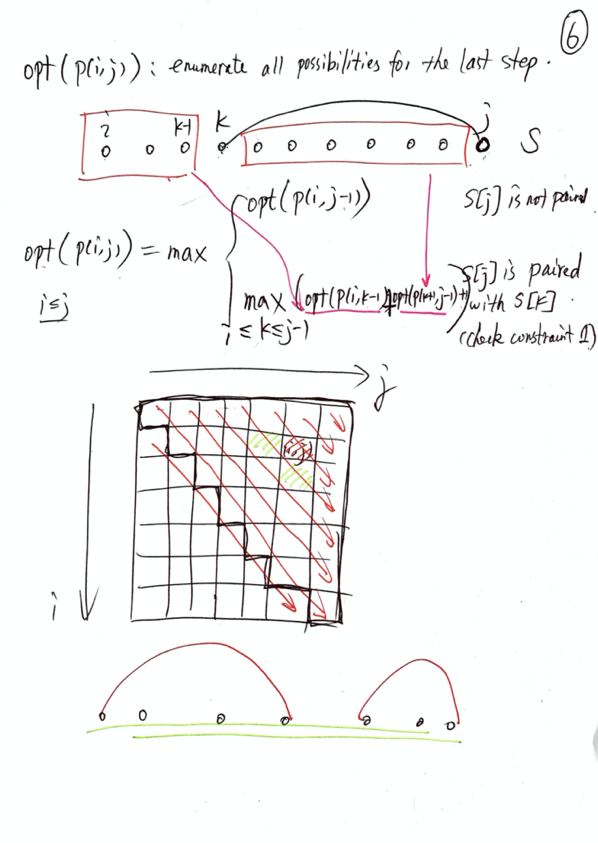 6
opt(p(i,j)): enumerate all possibilities for the last step.
i k-1 k j S
opt(p(i,j-1)) S[j] is not paired
opt(p(i,j)) = max
i≤j
max (opt(p(i,k-1)+opt(p(k+1,j-1)+1) S[j] is paired
i ≤ k≤j-1 with S[k]
(check constraint 1)
j
(i,j)
i